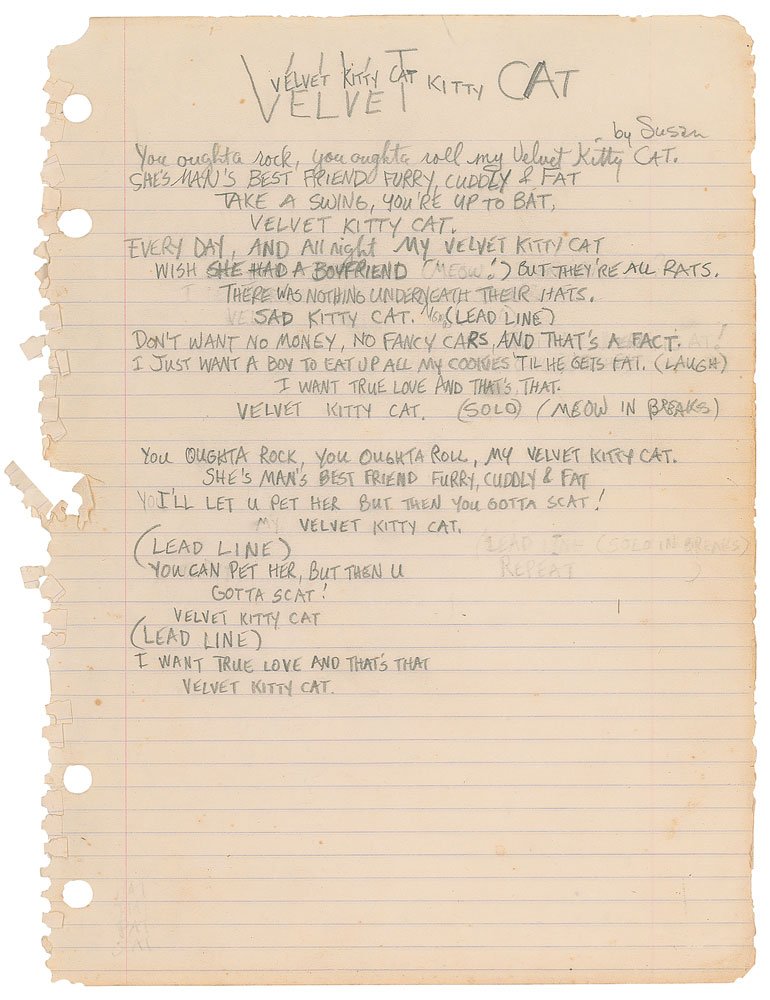 VELVET KITTY CAT
VELVET KITTY CAT
by Susan
You oughta rock, you oughta roll my Velvet Kitty CAT.
SHE'S MAN'S BEST FRIEND FURRY, CUDDLY & FAT
TAKE A SWING, YOU'RE UP TO BAT,
VELVET KITTY CAT.
EVERY DAY, AND All night MY VELVET KITTY CAT
WISH SHE HAD A BOYFRIEND (MEOW!) BUT THEY'RE ALL RATS.
THERE WAS NOTHING UNDERNEATH THEIR HATS.
SAD KITTY CAT. (LEAD LINE)
DON'T WANT NO MONEY, NO FANCY CARS, AND THAT'S A FACT.
I JUST WANT A BOY TO EAT UP ALL MY COOKIES 'TIL HE GETS FAT. (LAUGH)
I WANT TRUE LOVE AND THAT'S THAT.
VELVET KITTY CAT. (SOLO) (MEOW IN BREAKS)
You OUGHTA ROCK, YOU OUGHTA ROLL, MY VELVET KITTY CAT.
SHE'S MAN'S BEST FRIEND FURRY, CUDDLY & FAT
I'LL LET U PET HER BUT THEN YOU GOTTA SCAT!
MY VELVET KITTY CAT.
(LEAD LINE) (LEAD LINE (SOLO IN BREAKS)
YOU CAN PET HER, BUT THEN U REPEAT )
GOTTA SCAT!
VELVET KITTY CAT
(LEAD LINE)
I WANT TRUE LOVE AND THAT'S THAT
VELVET KITTY CAT.